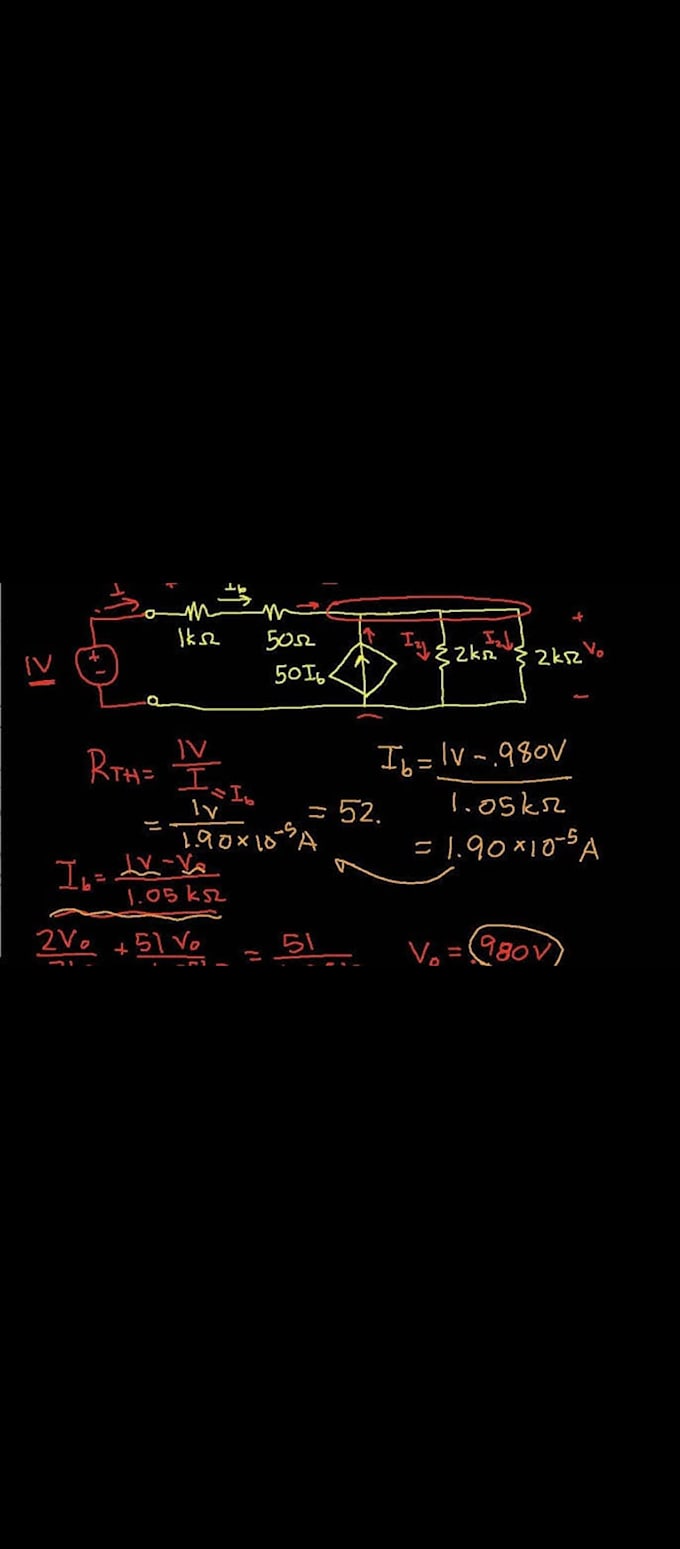 I + Ib −
1kΩ 50Ω
1V + − 50Ib I2 2kΩ I2 2kΩ + Vo −
RTH = 1V / I = Ib
= 1V / 1.90×10⁻⁵A = 52.
Ib = 1V − .980V / 1.05kΩ
= 1.90×10⁻⁵A
Ib = 1V − Vo / 1.05kΩ
2Vo + 51Vo = 51
Vo = .980V